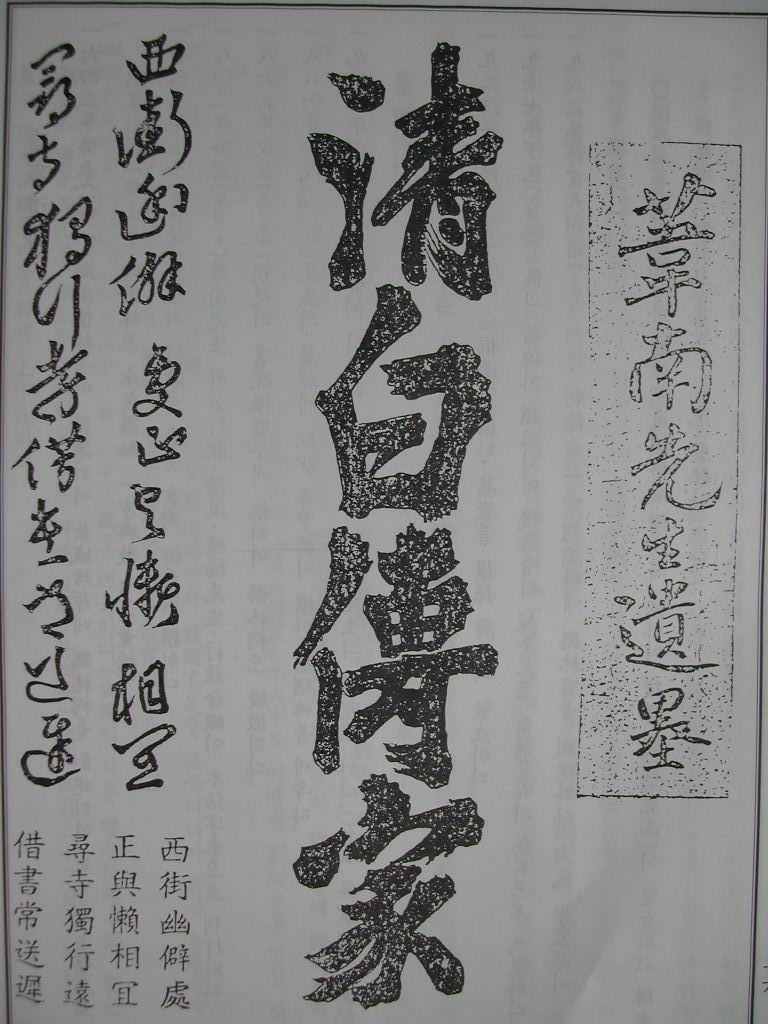 葦南先生遺墨
清白傳家
西街幽僻處正與懶相冝
尋寺獨行遠借書常送遲
西街幽僻處
正與懶相冝
尋寺獨行遠
借書常送遲